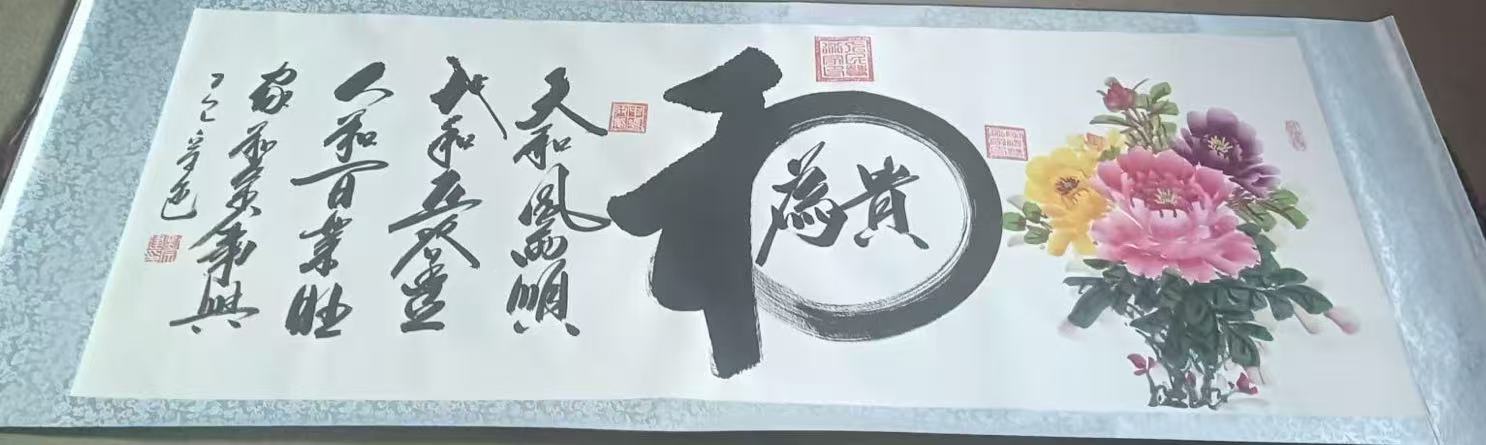 和
為貴
天和風雨順
地和五谷登
人和百業旺
家和萬事興